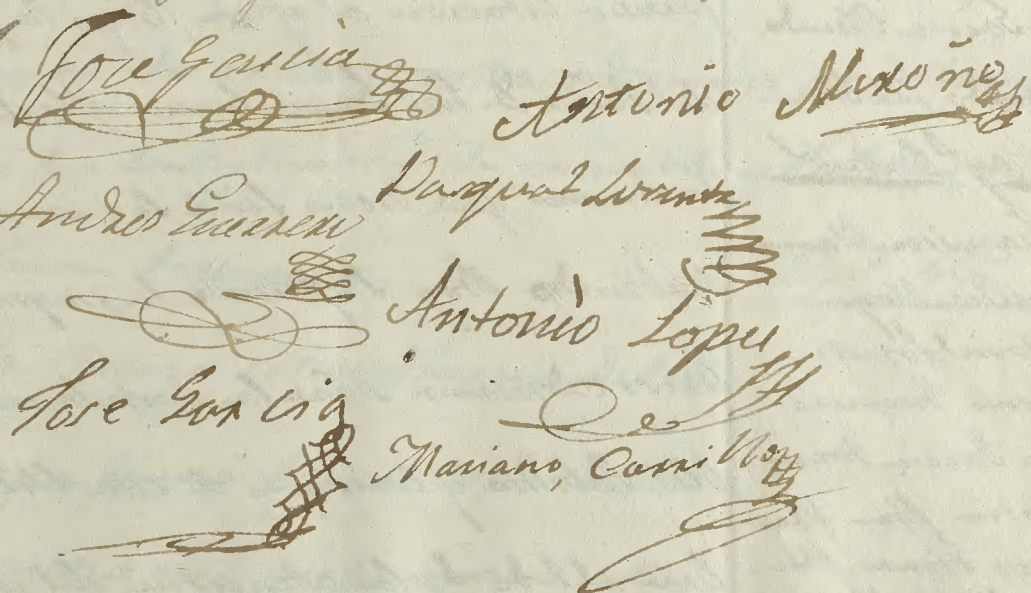 Jose Garcia
Antonio Meroño
Andres Guerrero
Pasqual Lorente
Antonio Lopez
Jose Garcia
Mariano Carrillo